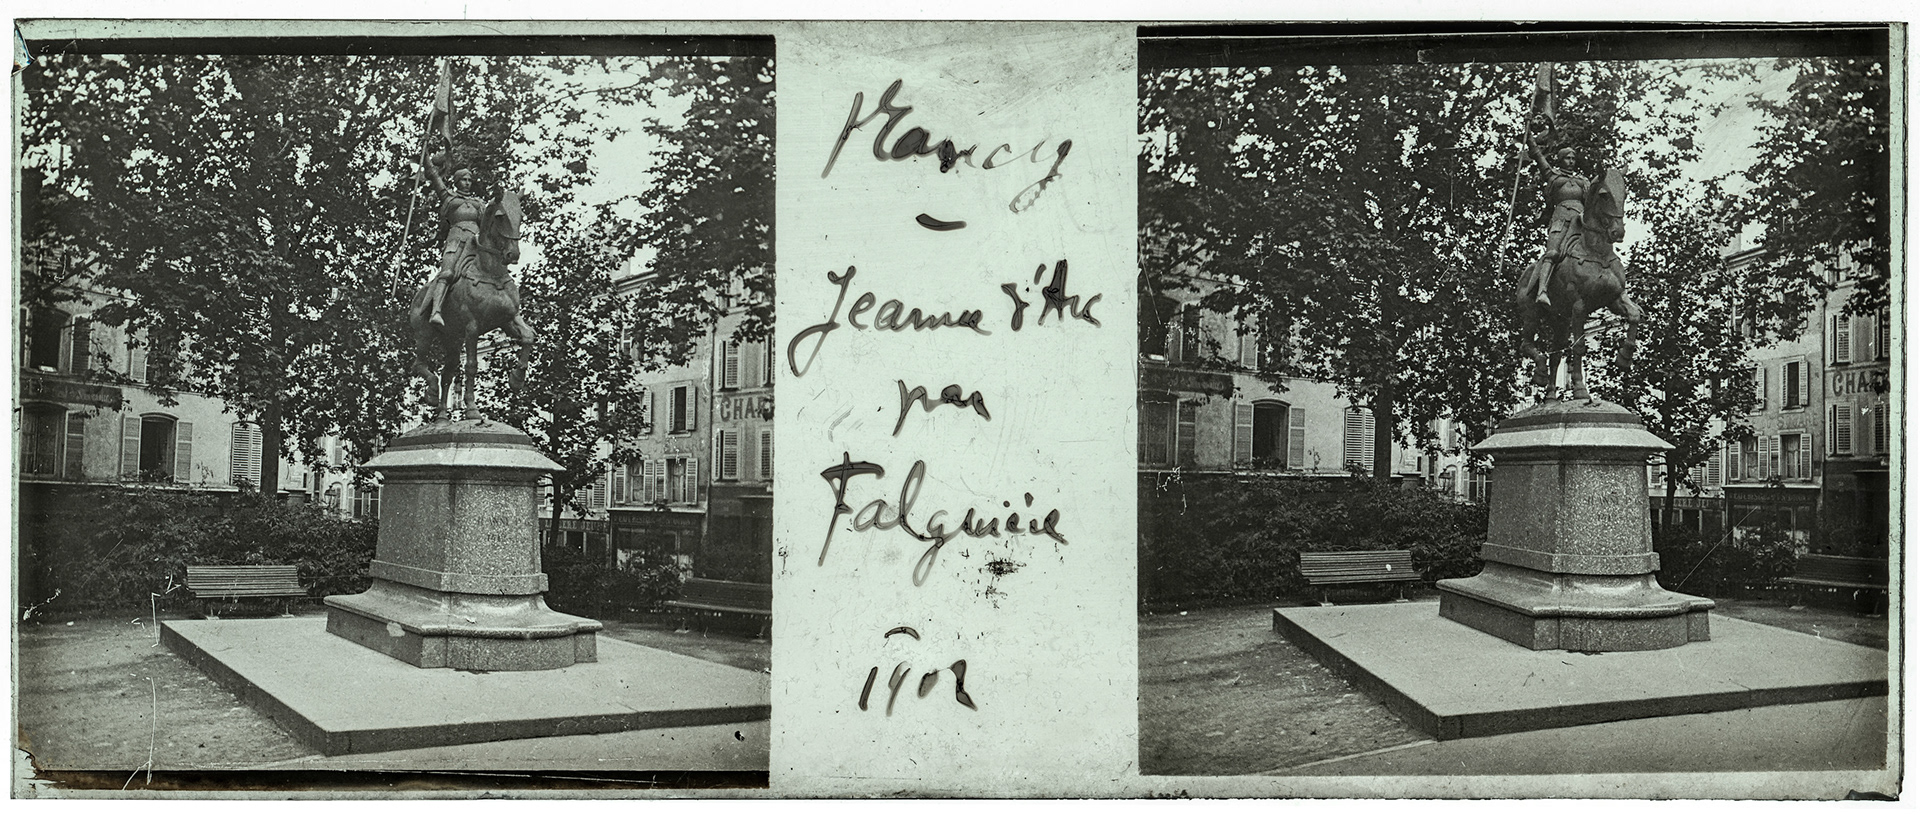 Nancy
–
Jeanne d'Arc
par
Falguière
–
1902
CHA
CHA